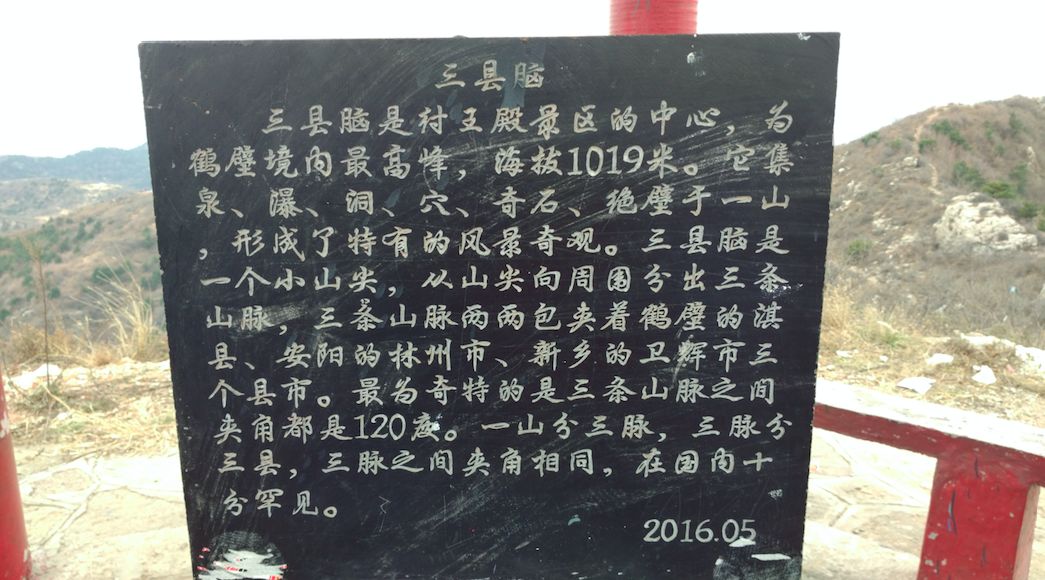 三县脑
三县脑是纣王殿景区的中心，为
鹤壁境内最高峰，海拔1019米。它集
泉、瀑、洞、穴、奇石、绝壁于一山
，形成了特有的风景奇观。三县脑是
一个小山尖，从山尖向周围分出三条
山脉，三条山脉两两包夹着鹤壁的淇
县、安阳的林州市、新乡的卫辉市三
个县市。最为奇特的是三条山脉之间
夹角都是120度。一山分三脉，三脉分
三县，三脉之间夹角相同，在国内十
分罕见。
2016.05